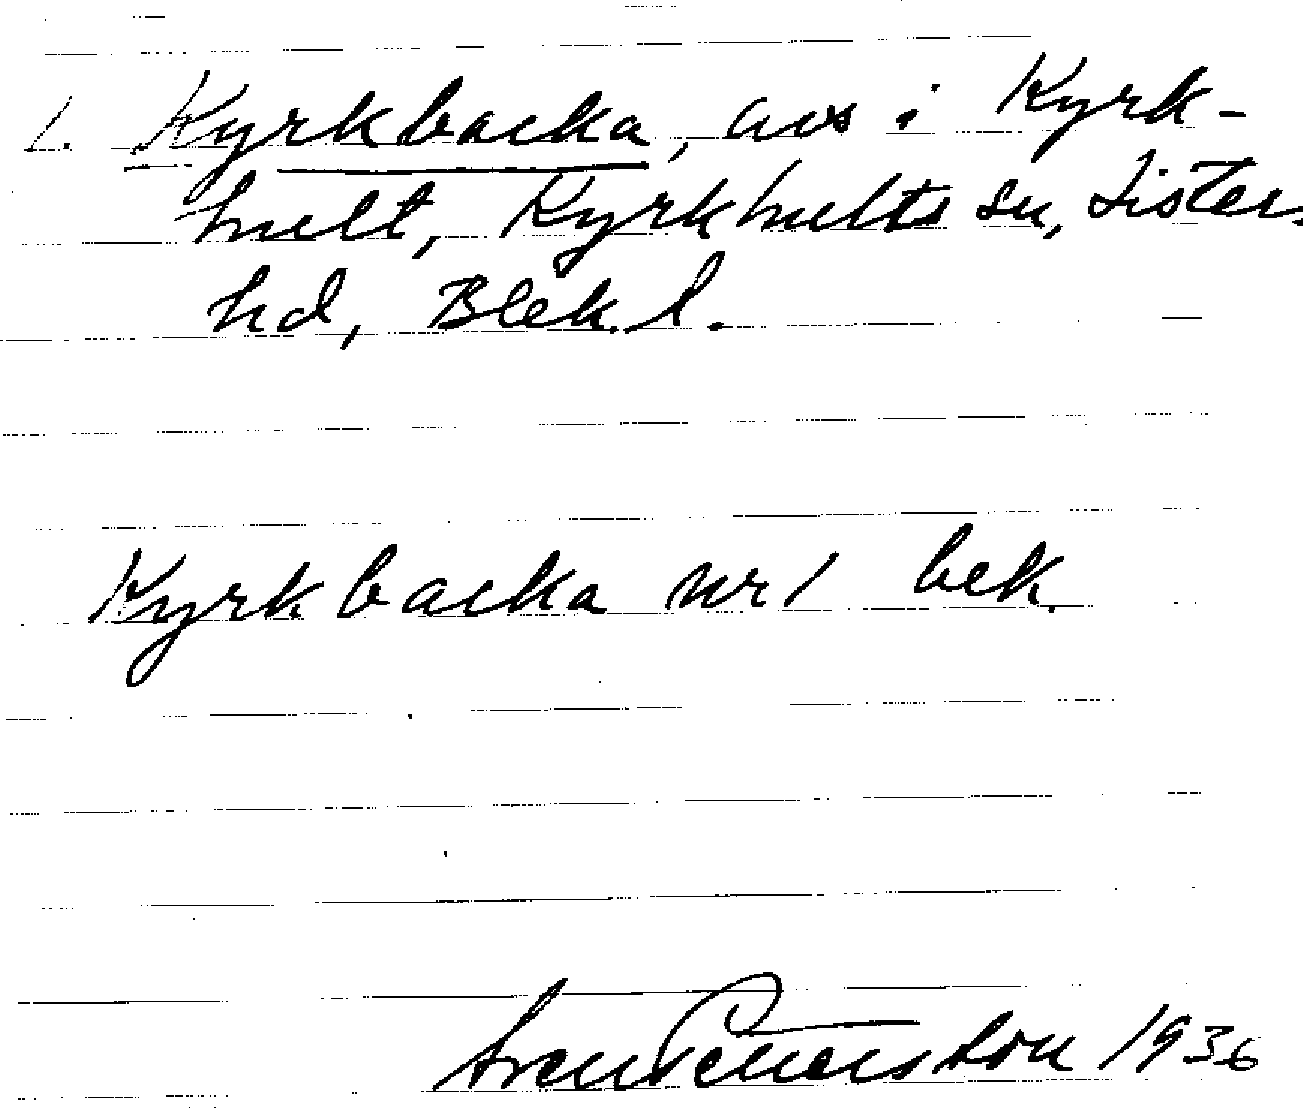 1. Kyrkbacka, avs i Kyrk-
hult, Kyrkhults sn, Listers
hd, Blek. l.
Kyrkbacka nr 1 bek.
Sven Petersson 1936